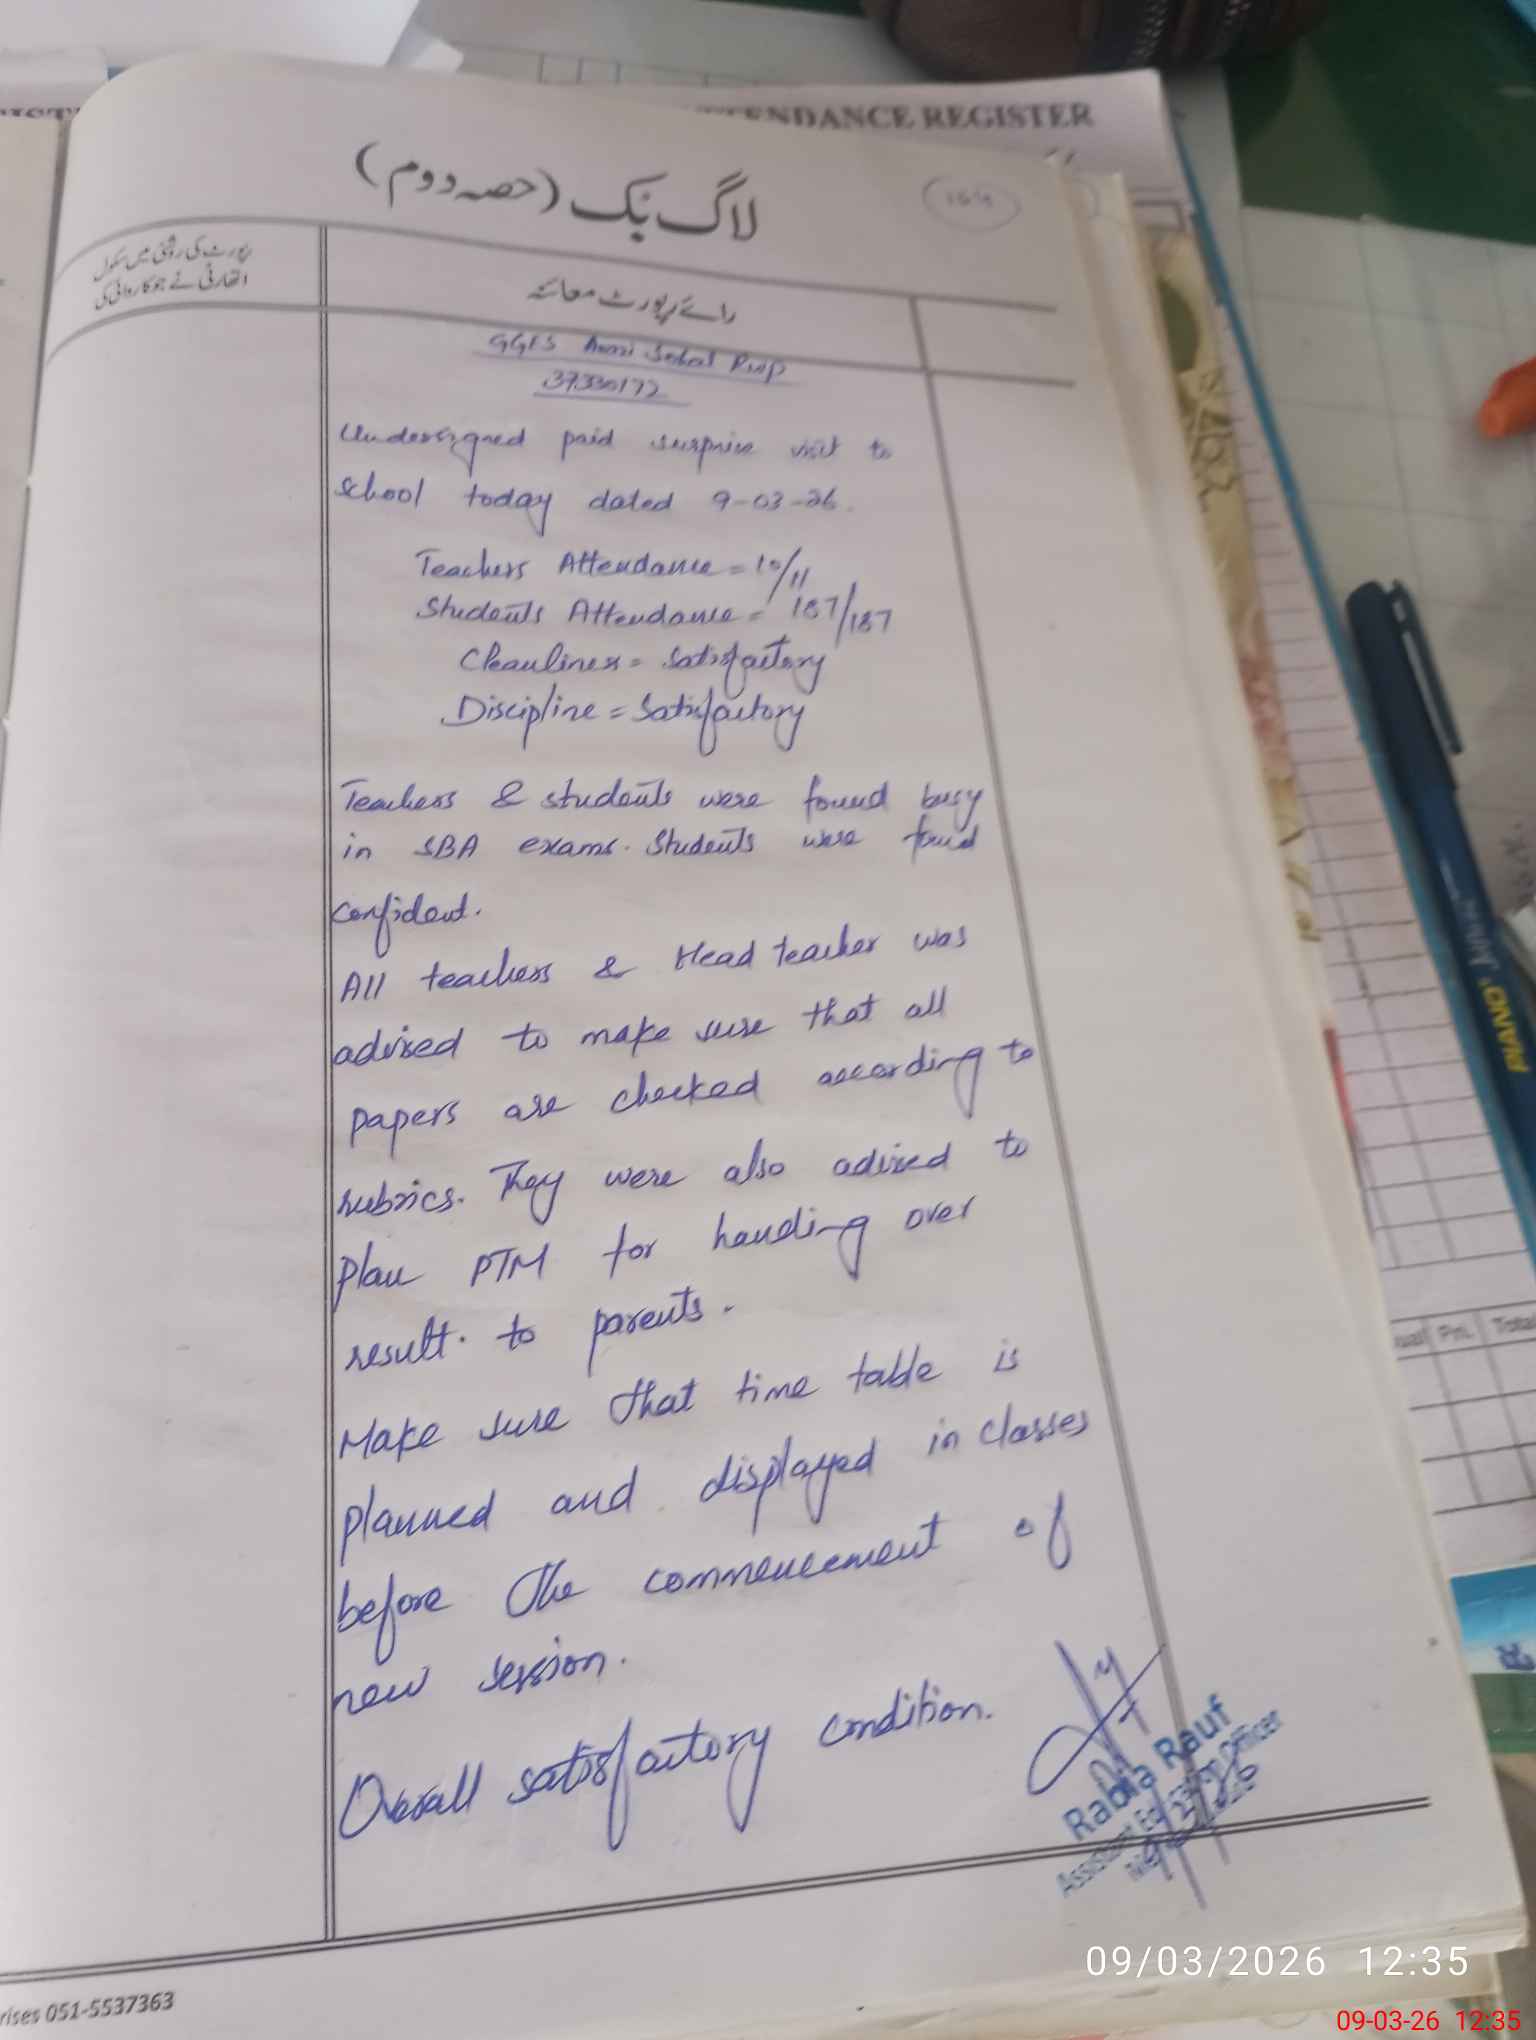 ATTENDANCE REGISTER
لاگ بک (حصہ دوم)
164
رپورٹ کی روشنی میں سکول
اتھارٹی نے جو کاروائی کی
رائے رپورٹ معائنہ
GGES
37330172
Undersigned paid surprise visit to
school today dated 9-03-26.
Teachers Attendance = 10/11
Students Attendance = 187/187
Cleanliness = Satisfactory
Discipline = Satisfactory
Teachers & students were found busy
in SBA exams. Students were found
confident.
All teachers & Head teacher was
advised to make sure that all
papers are checked according to
rubrics. They were also advised to
plan PTM for handing over
result. to parents.
Make sure that time table is
planned and displayed in classes
before the commencement of
new session.
Overall satisfactory condition.
Rabia Rauf
Officer
rises 051-5537363
PIANO
Pri. Total
09/03/2026 12:35
09-03-26 12:35